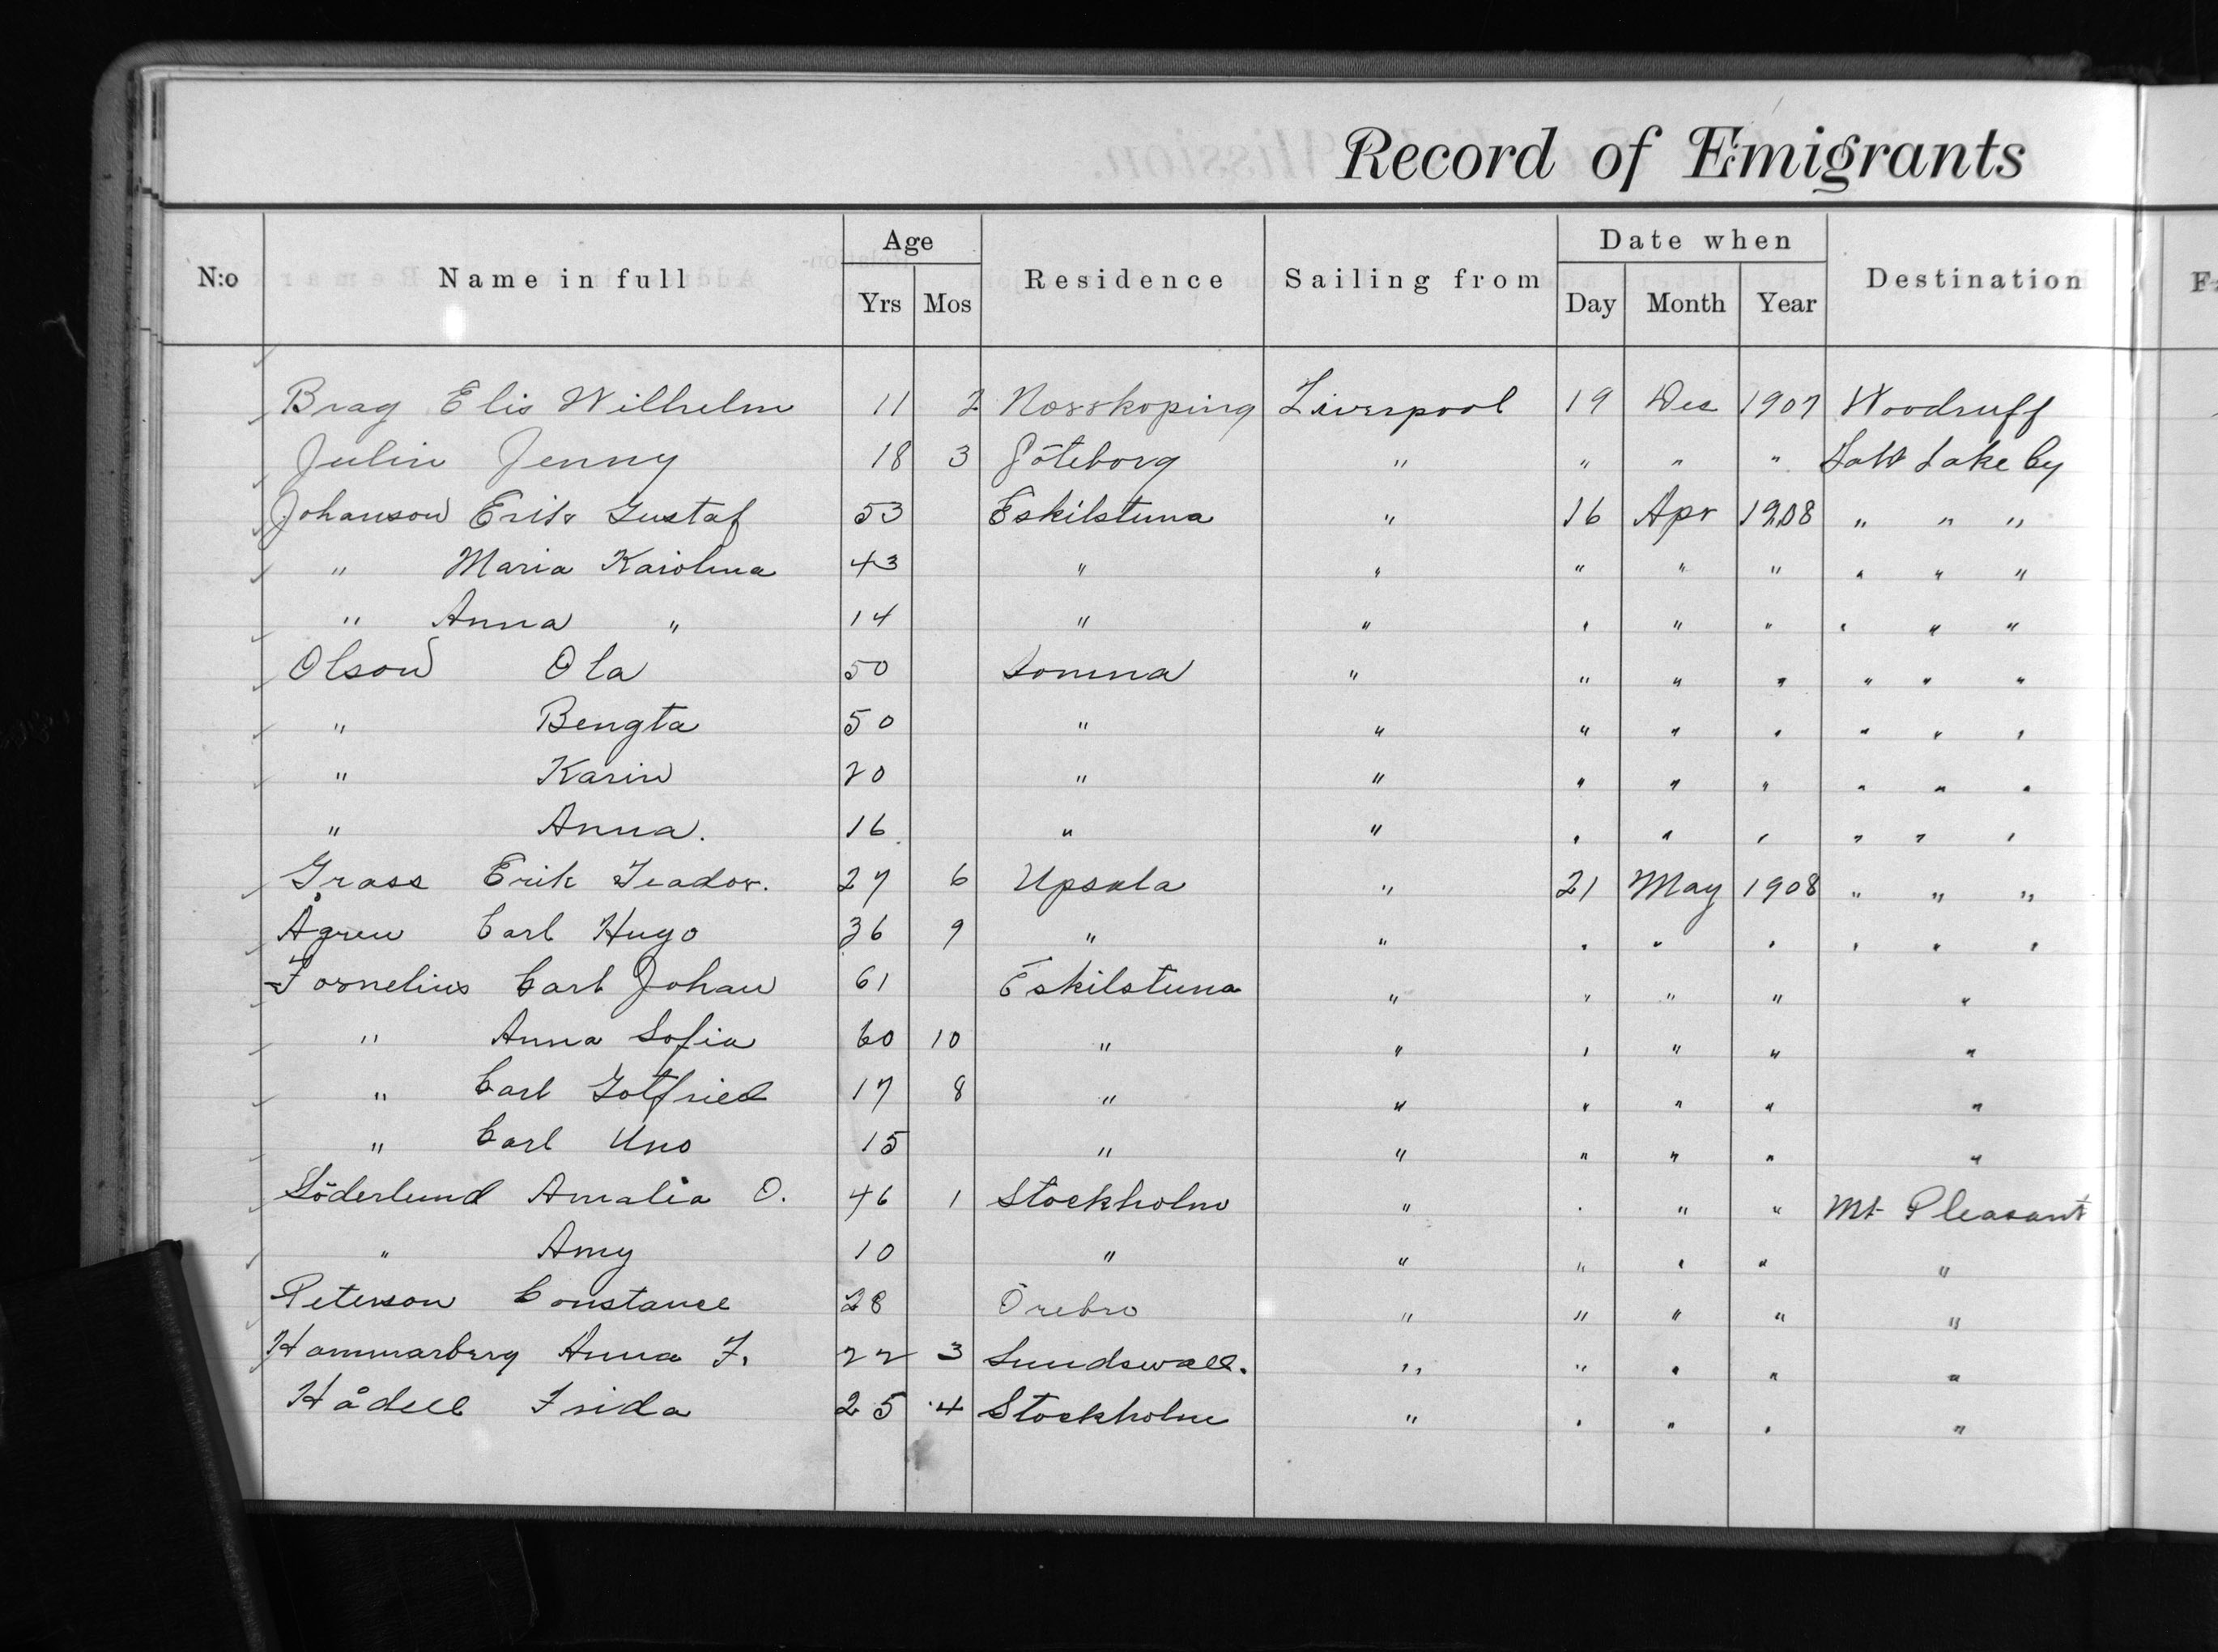 Record of Emigrants
N:o Name in full Age Residence Sailing from Date when Destination
Yrs Mos Day Month Year
Brag Elis Wilhelm 11 2 Norrkoping Liverpool 19 Dec 1907 Woodruff
Julin Jenny 18 3 Göteborg " " " " Salt Lake Cy
Johanson Erik Gustaf 53 Eskilstuna " 16 Apr 1908 " " "
" Maria Karolina 43 " " " " " " " "
" Anna " 14 " " " " " " " "
Olson Ola 50 Tomna " " " " " " "
" Bengta 50 " " " " " " " "
" Karin 20 " " " " " " " "
" Anna. 16 " " " " " " " "
Grass Erik Teador. 27 6 Upsala " 21 May 1908 " " "
Ågren Carl Hugo 36 9 " " " " " " " "
Fornelius Carl Johan 61 Eskilstuna " " " " "
" Anna Sofia 60 10 " " " " " "
" Carl Gotfried 17 8 " " " " " "
" Carl Uno 15 " " " " " "
Söderlund Amalia O. 46 1 Stockholm " " " " Mt Pleasant
" Amy 10 " " " " " "
Peterson Constance 28 Örebro " " " " "
Hammarberg Anna F. 22 3 Sundswall. " " " " "
Hådell Frida 25 4 Stockholm " " " " "